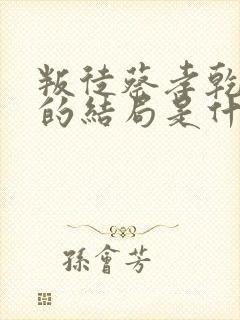 叛徒蔡孝乾
的結局是什
孫會芳